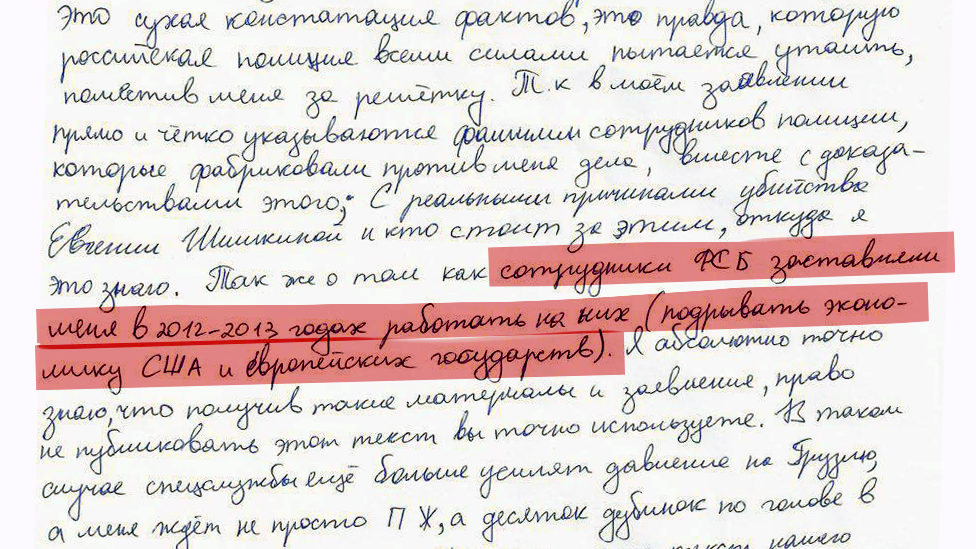 Это сухая констатация фактов, это правда, которую
российская полиция всеми силами пытается утаить,
поместив меня за решётку. Т.к в моём заявлении
прямо и чётко указываются фамилии сотрудников полиции,
которые фабриковали против меня дела, вместе с доказа-
тельствами этого; С реальными причинами убийства
Евгении Шишкиной и кто стоит за этим, откуда я
это знаю. Так же о том как сотрудники ФСБ заставляли
меня в 2012-2013 годах работать на них (подрывать эконо-
мику США и европейских государств). Я абсолютно точно
знаю, что получив такие материалы и заявление, право
не публиковать этот текст вы точно используете. В таком
случае спецслужбы ещё больше усилят давление на Грузлю,
а меня ждёт не просто П Ж, а десяток дубинок по голове в
нашего